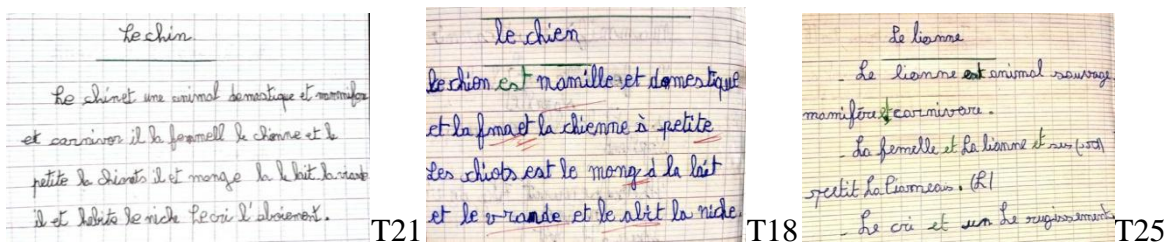 Le chin
Le chinet une animal domastique et mammifor
et carnivor il la femmell la chienne et le
petite le chionts il et mange la le lait la viande
il et habite le niche Le cri l'aboiement.
T21
le chien
Le chion est mamille et domestique
et la fma et la chienne à petite
Les chiots est le mong d la lait
et le vrande et le abit la niche.
T18
Le lionne
- Le lionne est animal sauvage
mamifére et carnivore.
- La femelle et La lionne et ses
petit La Lioneaus. (L
- Le cri et un Le rugissement
T25